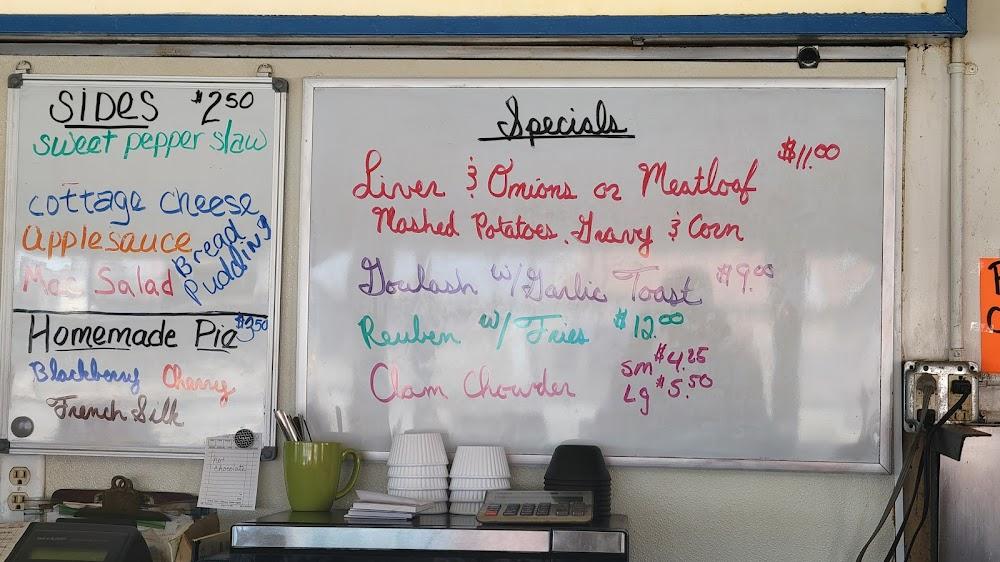 SIDES $2.50
sweet pepper slaw
cottage cheese
applesauce
Bread Pudding
Mac Salad
Homemade Pie $3.50
Blackberry Cherry
French Silk
hot chocolate
Specials
Liver & Onions or Meatloaf $11.00
Mashed Potatoes, Gravy & Corn
Goulash w/ Garlic Toast $9.00
Reuben w/ Fries $12.00
Clam Chowder sm $4.25
Lg $5.50